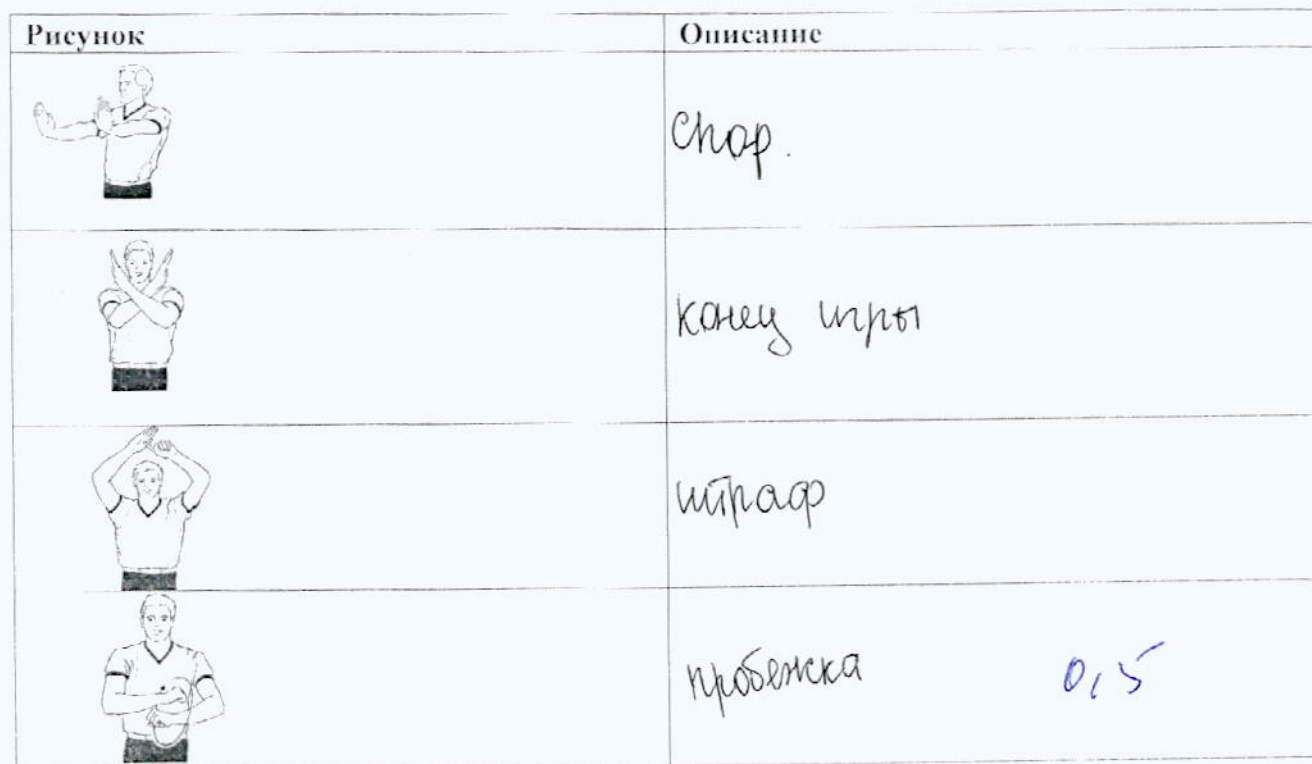 Рисунок
Описание
Спор.
конец игры
штраф
пробежка
0,5